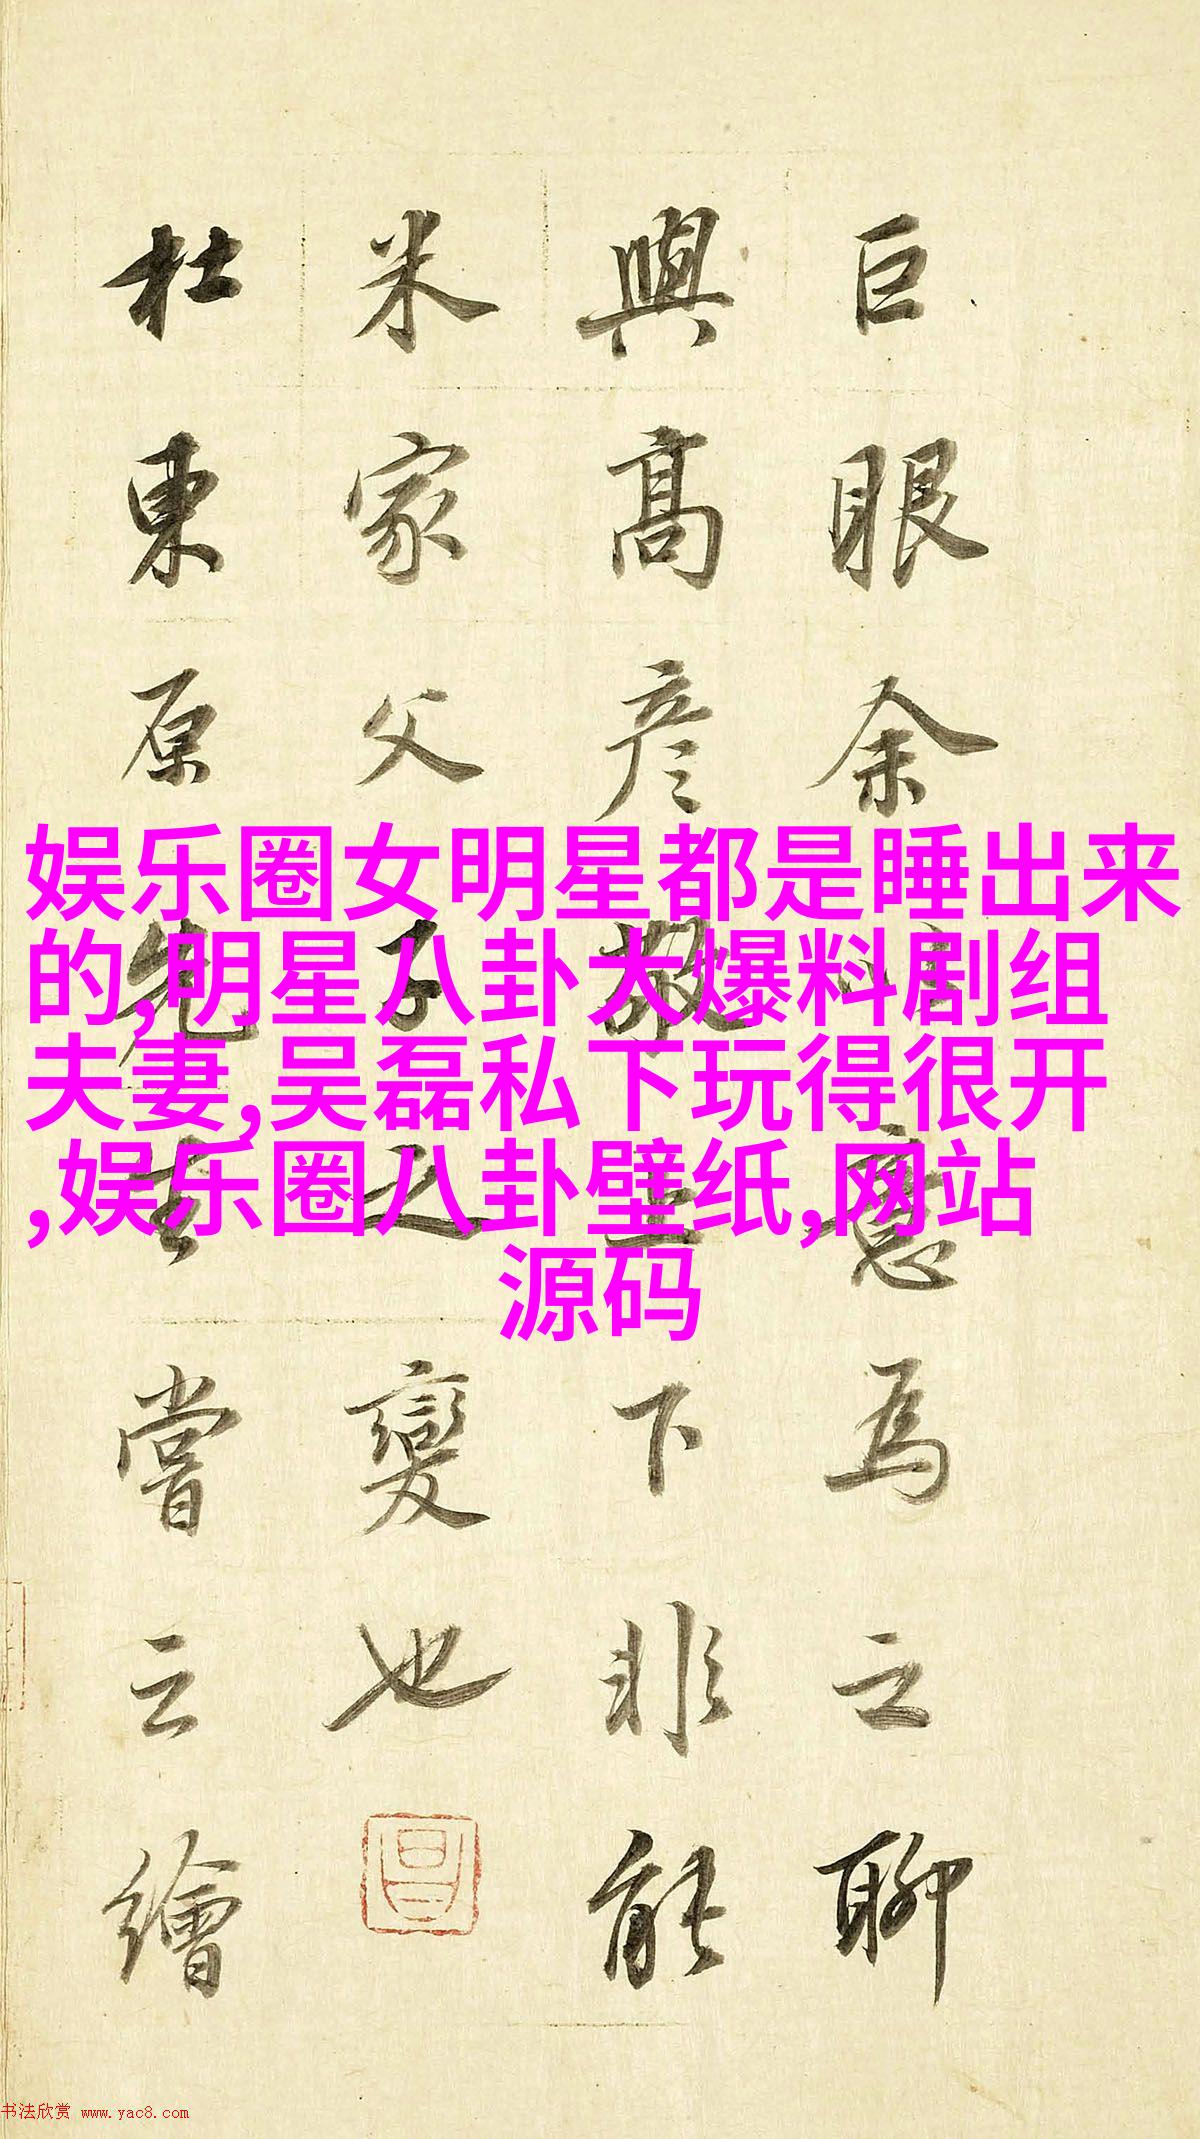 巨眼余意爲之聊
與高彥敬上下非能
米家父子之變也
杜東原先生嘗云繪
娱乐圈女明星都是睡出来
的,明星八卦大爆料剧组
夫妻,吴磊私下玩得很开
,娱乐圈八卦壁纸,网站
源码
书法欣赏 www.yac8.com